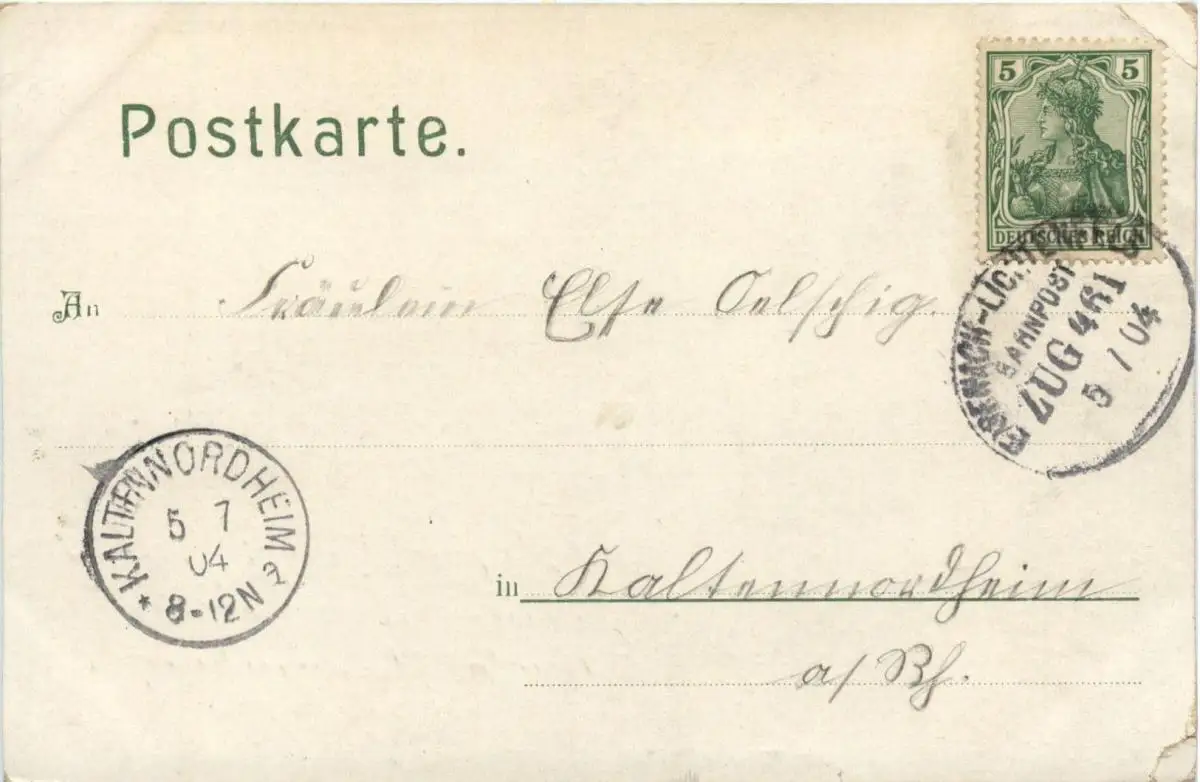 Postkarte.
5 5
DEUTSCHES REICH
EISENACH-LICHTENFELS
BAHNPOST
ZUG 461
5 7 04
An Fräulein Else Oelschig.
KALTENNORDHEIM
5 7
04
8-12N
in Kaltennordheim
a/Rh.